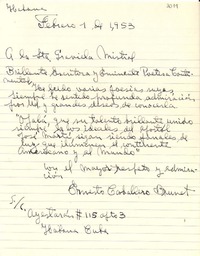 Habana
Febrero 1 de 1,953
A la Srta Gravida Mistral
Brillante Escritora y Eminente Poetisa Conti-
nental
He leido varias poesias suyas
siempre he sentido profunda admiración
por Ud y grandes deseos de conocerla
"Ojalá, que su talento brillante unido
siempre a los ideales del Apostol
José Marti, sigan siendo fanales de
luz que iluminen el continente
Americano y al Mundo"
Con el mayor respeto y admira-
ción
Ernesto Caballero Brunet
S/c
Agustina # 115 apto 3
Habana Cuba